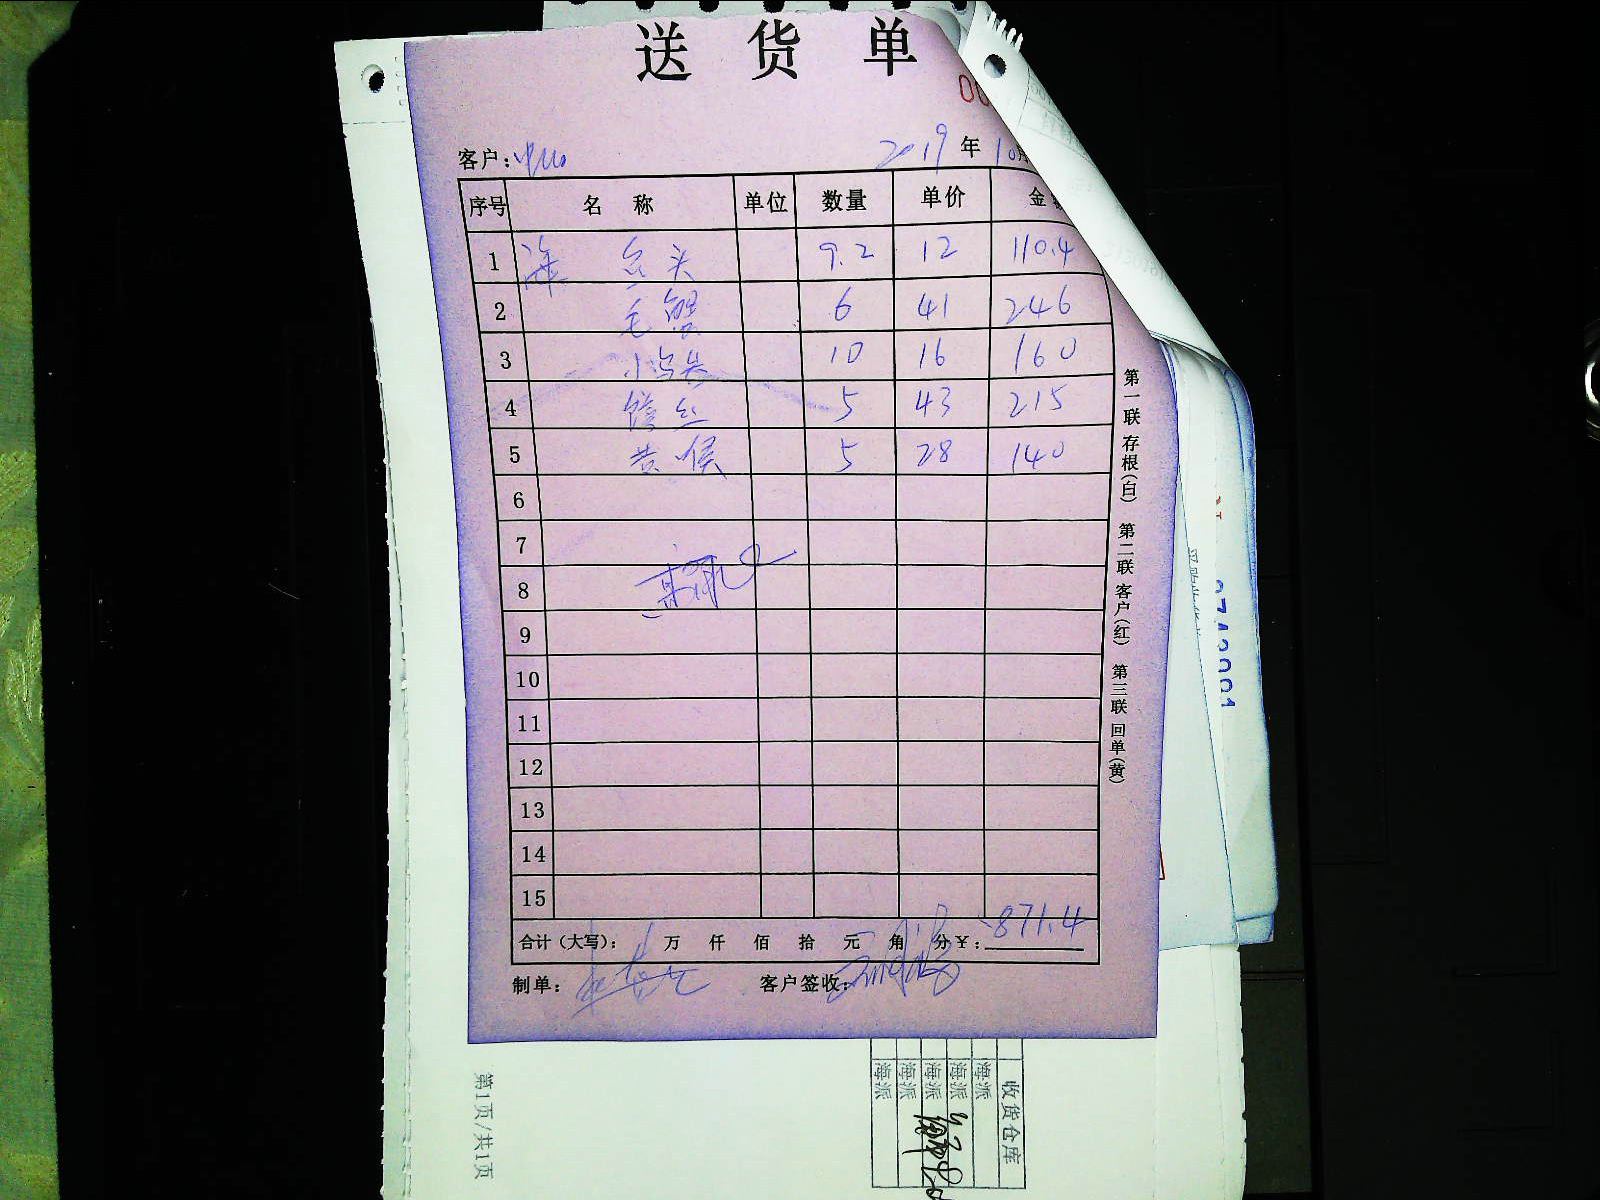 送货单
00
客户: 中山 2019年10月
序号 名称 单位 数量 单价 金
1 头 9.2 12 110.4
2 毛蟹 6 41 246
3 小乌头 10 16 160
4 丝 5 43 215
5 黄喉 5 28 140
6
7
8
9
10
11
12
13
14
15
合计(大写): 万 仟 佰 拾 元 角 分¥: 871.4
制单: 客户签收:
第一联 存根(白) 第二联 客户(红) 第三联 回单(黄)
收货仓库
海派
海派
海派
海派
海派
第1页/共1页